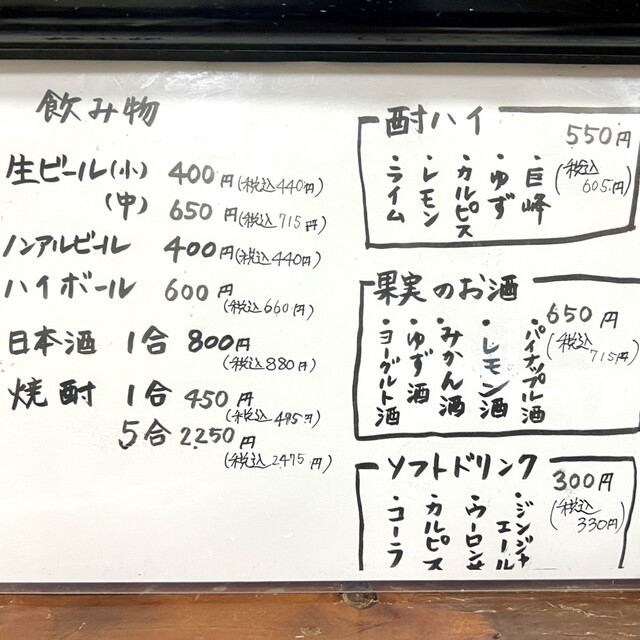 飲み物
生ビール(小) 400円(税込440円)
(中) 650円(税込715円)
ノンアルビール 400円(税込440円)
ハイボール 600円(税込660円)
日本酒 1合 800円(税込880円)
焼酎 1合 450円(税込495円)
5合 2250円(税込2475円)
酎ハイ 550円(税込605円)
・巨峰
・ゆず
・カルピス
・レモン
・ライム
果実のお酒 650円(税込715円)
・パイナップル酒
・レモン酒
・みかん酒
・ゆず酒
・ヨーグルト酒
ソフトドリンク 300円(税込330円)
・ジンジャエール
・ウーロン茶
・カルピス
・コーラ